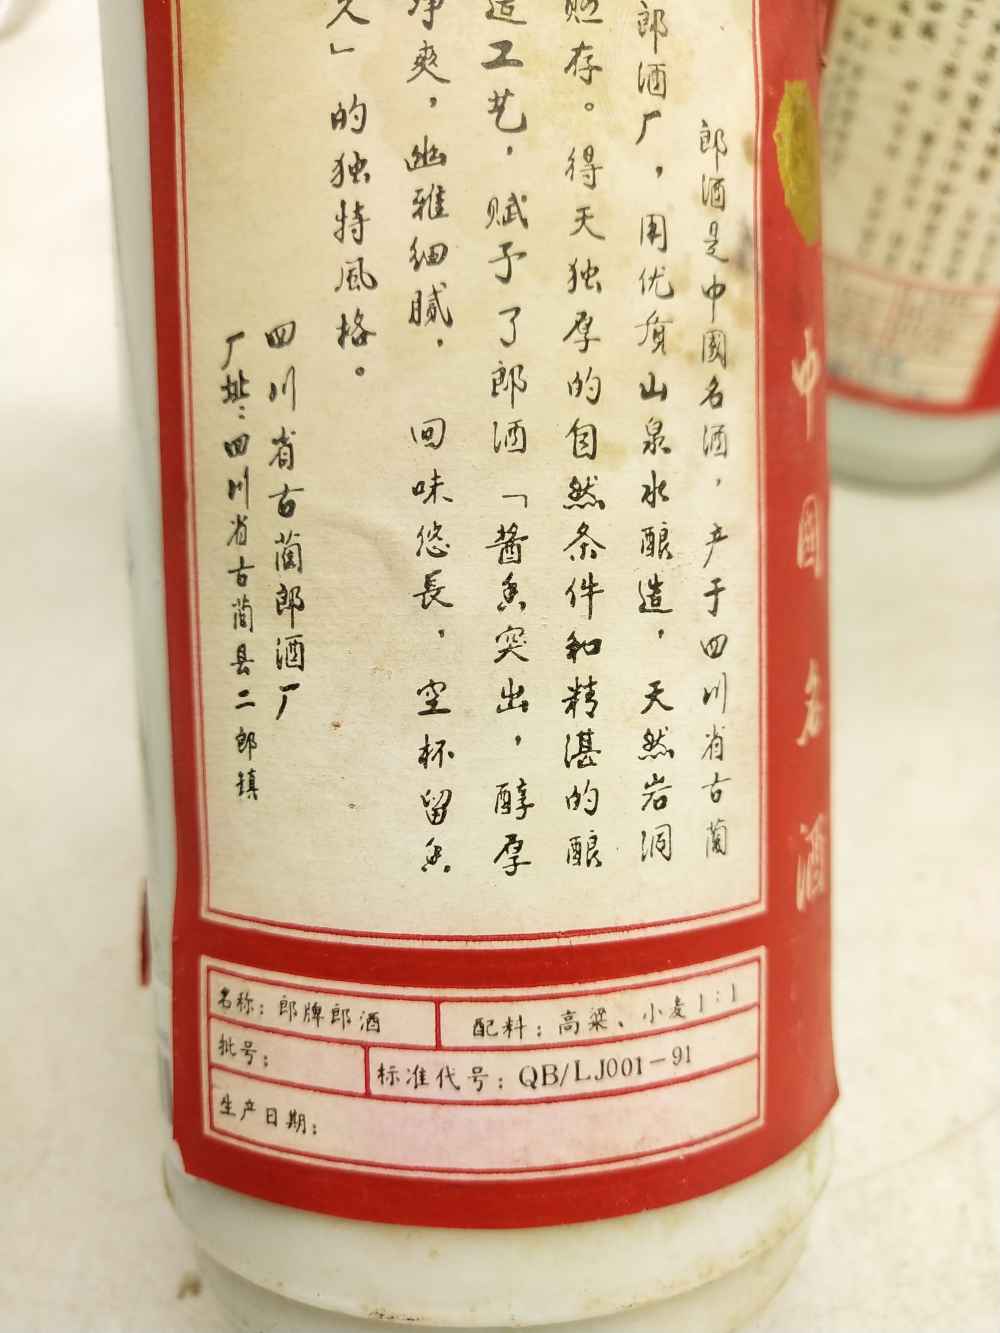 郎酒是中國名酒，产于四川省古蔺
郎酒厂，用优质山泉水酿造，天然岩洞
贮存。得天独厚的自然条件和精湛的酿
造工艺，赋予了郎酒「酱香突出，醇厚
净爽，幽雅细腻，回味悠長，空杯留香
久」的独特風格。
四川省古蔺郎酒厂
厂址：四川省古蔺县二郎镇
中國名酒
名称：郎牌郎酒
配料：高粱、小麦1：1
批号：
标准代号：QB/LJ001-91
生产日期：